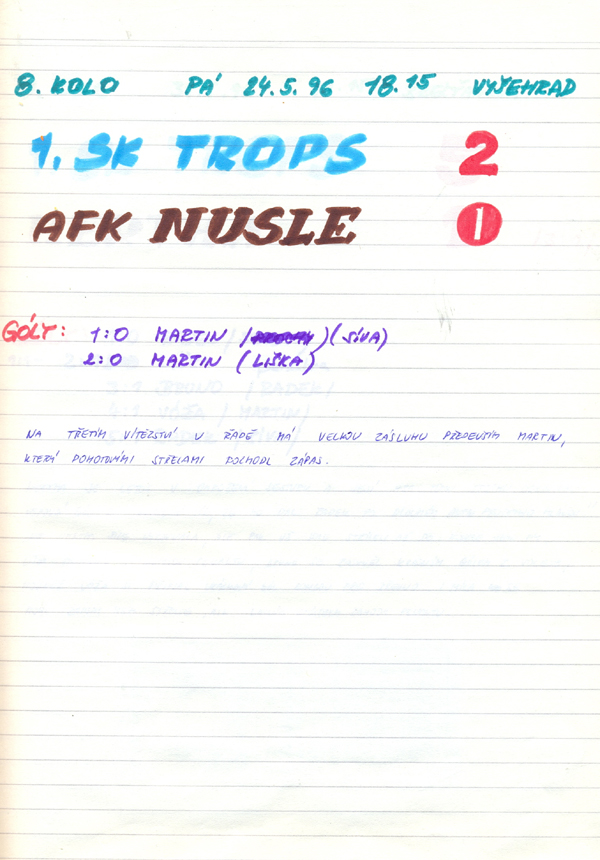 8. KOLO PÁ 24.5.96 18.15 VYŠEHRAD
1. SK TROPS 2
AFK NUSLE 1
GÓLY: 1:0 MARTIN / ) (SÍVA)
2:0 MARTIN (LIŠKA)
NA TŘETÍM VÍTĚZSTVÍ V ŘADĚ MÁ VELKOU ZÁSLUHU PŘEDEVŠÍM MARTIN,
KTERÝ POHOTOVÝMI STŘELAMI ZÁPAS.